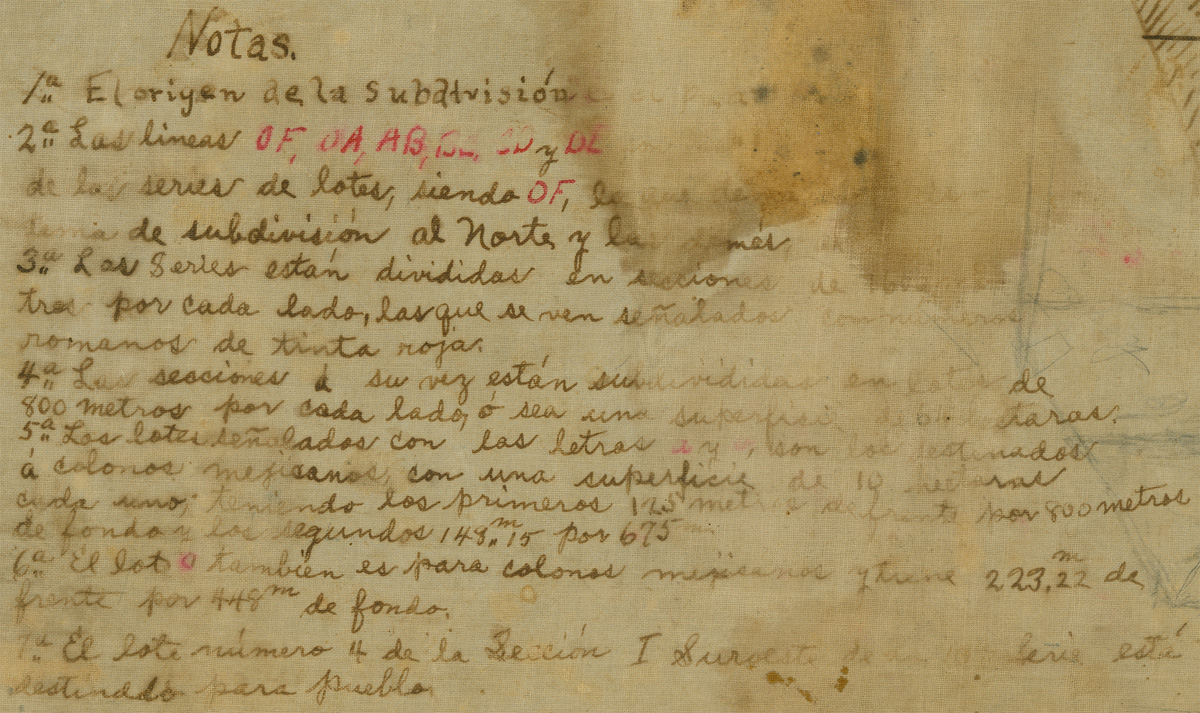 Notas.
1ª El origen de la Subdivisión
2ª Las lineas OF, OA, AB, CD y DE
de las series de lotes, siendo OF, la que
de subdivisión al Norte, y las demás,
3ª Las Series están divididas en secciones de
tros por cada lado, las que se ven señalados con numeros
romanos de tinta roja.
4ª Las secciones á su vez están subdivididas en lotes de
800 metros por cada lado, ó sea una superficie de
5ª Los lotes señalados con las letras y son los destinados
á colonos mejicanos, con una superficie de 10 hectaras
cada uno; teniendo los primeros 125 metros de frente por 800 metros
de fondo y los segundos 148.m15 por 675 m.
6ª El lote también es para colonos mejicanos y tiene 223.m22 de
frente por 448m de fondo.
7ª El lote número 4 de la Sección I Suroeste de la Serie está
destinado para pueblo.